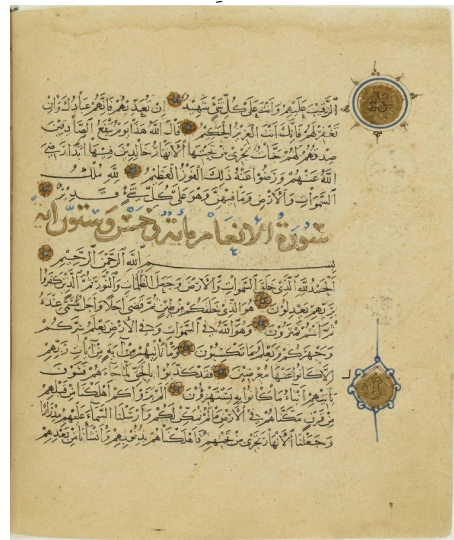 الرقيب عليهم وانت على كل شيء شهيد ان تعذبهم فانهم عبادك وان
تغفر لهم فانك انت العزيز الحكيم قال الله هذا يوم ينفع الصادقين
صدقهم لهم جنات تجري من تحتها الانهار خالدين فيها ابدا رضي
الله عنهم ورضوا عنه ذلك الفوز العظيم لله ملك
السموات والارض وما فيهن وهو على كل شيء قدير
سورة الانعام مائة وخمس وستون آية
بسم الله الرحمن الرحيم
الحمد لله الذي خلق السموات والارض وجعل الظلمات والنور ثم الذين كفروا
بربهم يعدلون هو الذي خلقكم من طين ثم قضى اجلا واجل مسمى عنده
ثم انتم تمترون وهو الله في السموات وفي الارض يعلم سركم
وجهركم ويعلم ما تكسبون وما تأتيهم من آية من آيات ربهم
الا كانوا عنها معرضين فقد كذبوا بالحق لما جاءهم فسوف
يأتيهم انباء ما كانوا به يستهزؤن الم يروا كم اهلكنا من قبلهم
من قرن مكناهم في الارض ما لم نمكن لكم وارسلنا السماء عليهم مدرارا
وجعلنا الانهار تجري من تحتهم فاهلكناهم بذنوبهم وانشأنا من بعدهم